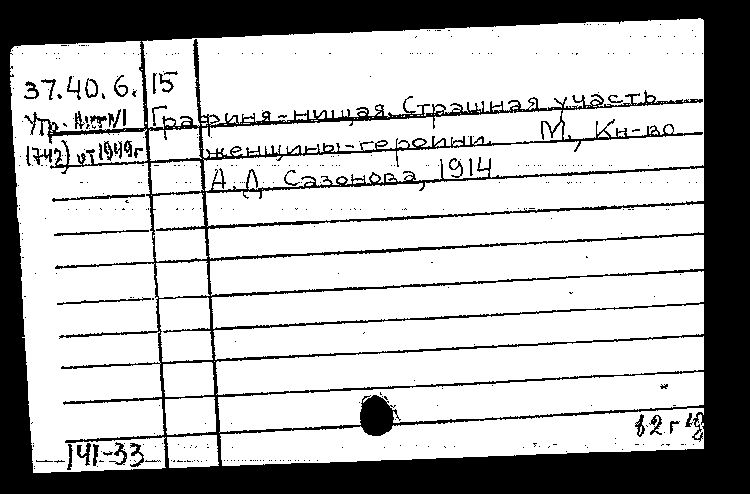 37.40.6.15
Утр. Акт №1 Графиня-нищая. Страшная участь
(742) от 1949г женщины-героини. М., Кн-во
А.Д. Сазонова, 1914.
141-33